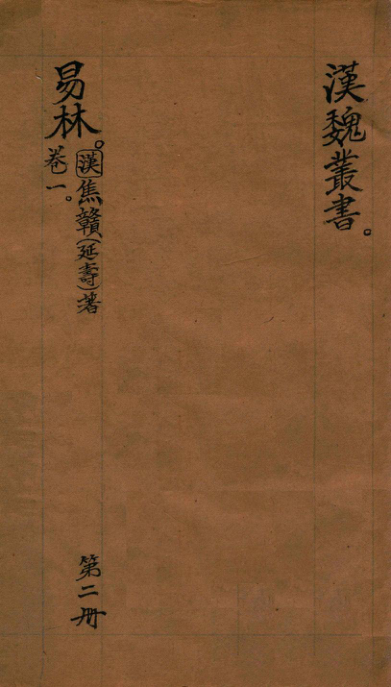 漢魏叢書。
易林。
漢焦贛(延壽)著
卷一。
第二册